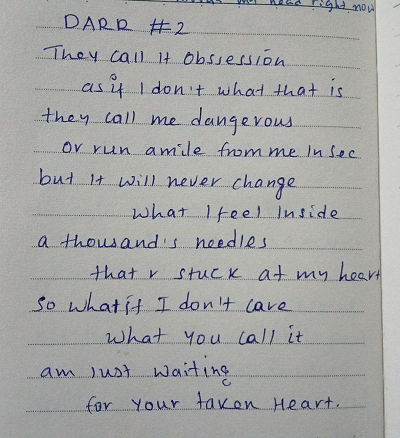 my head right now
DARR #2
They call It Obssession
as if I don't what that is
they call me dangerous
Or run amile from me In sec
but It will never change
what I feel Inside
a thousand's needles
that r stuck at my heart
So what if I don't care
what you call it
am Just waiting
for your taken Heart.